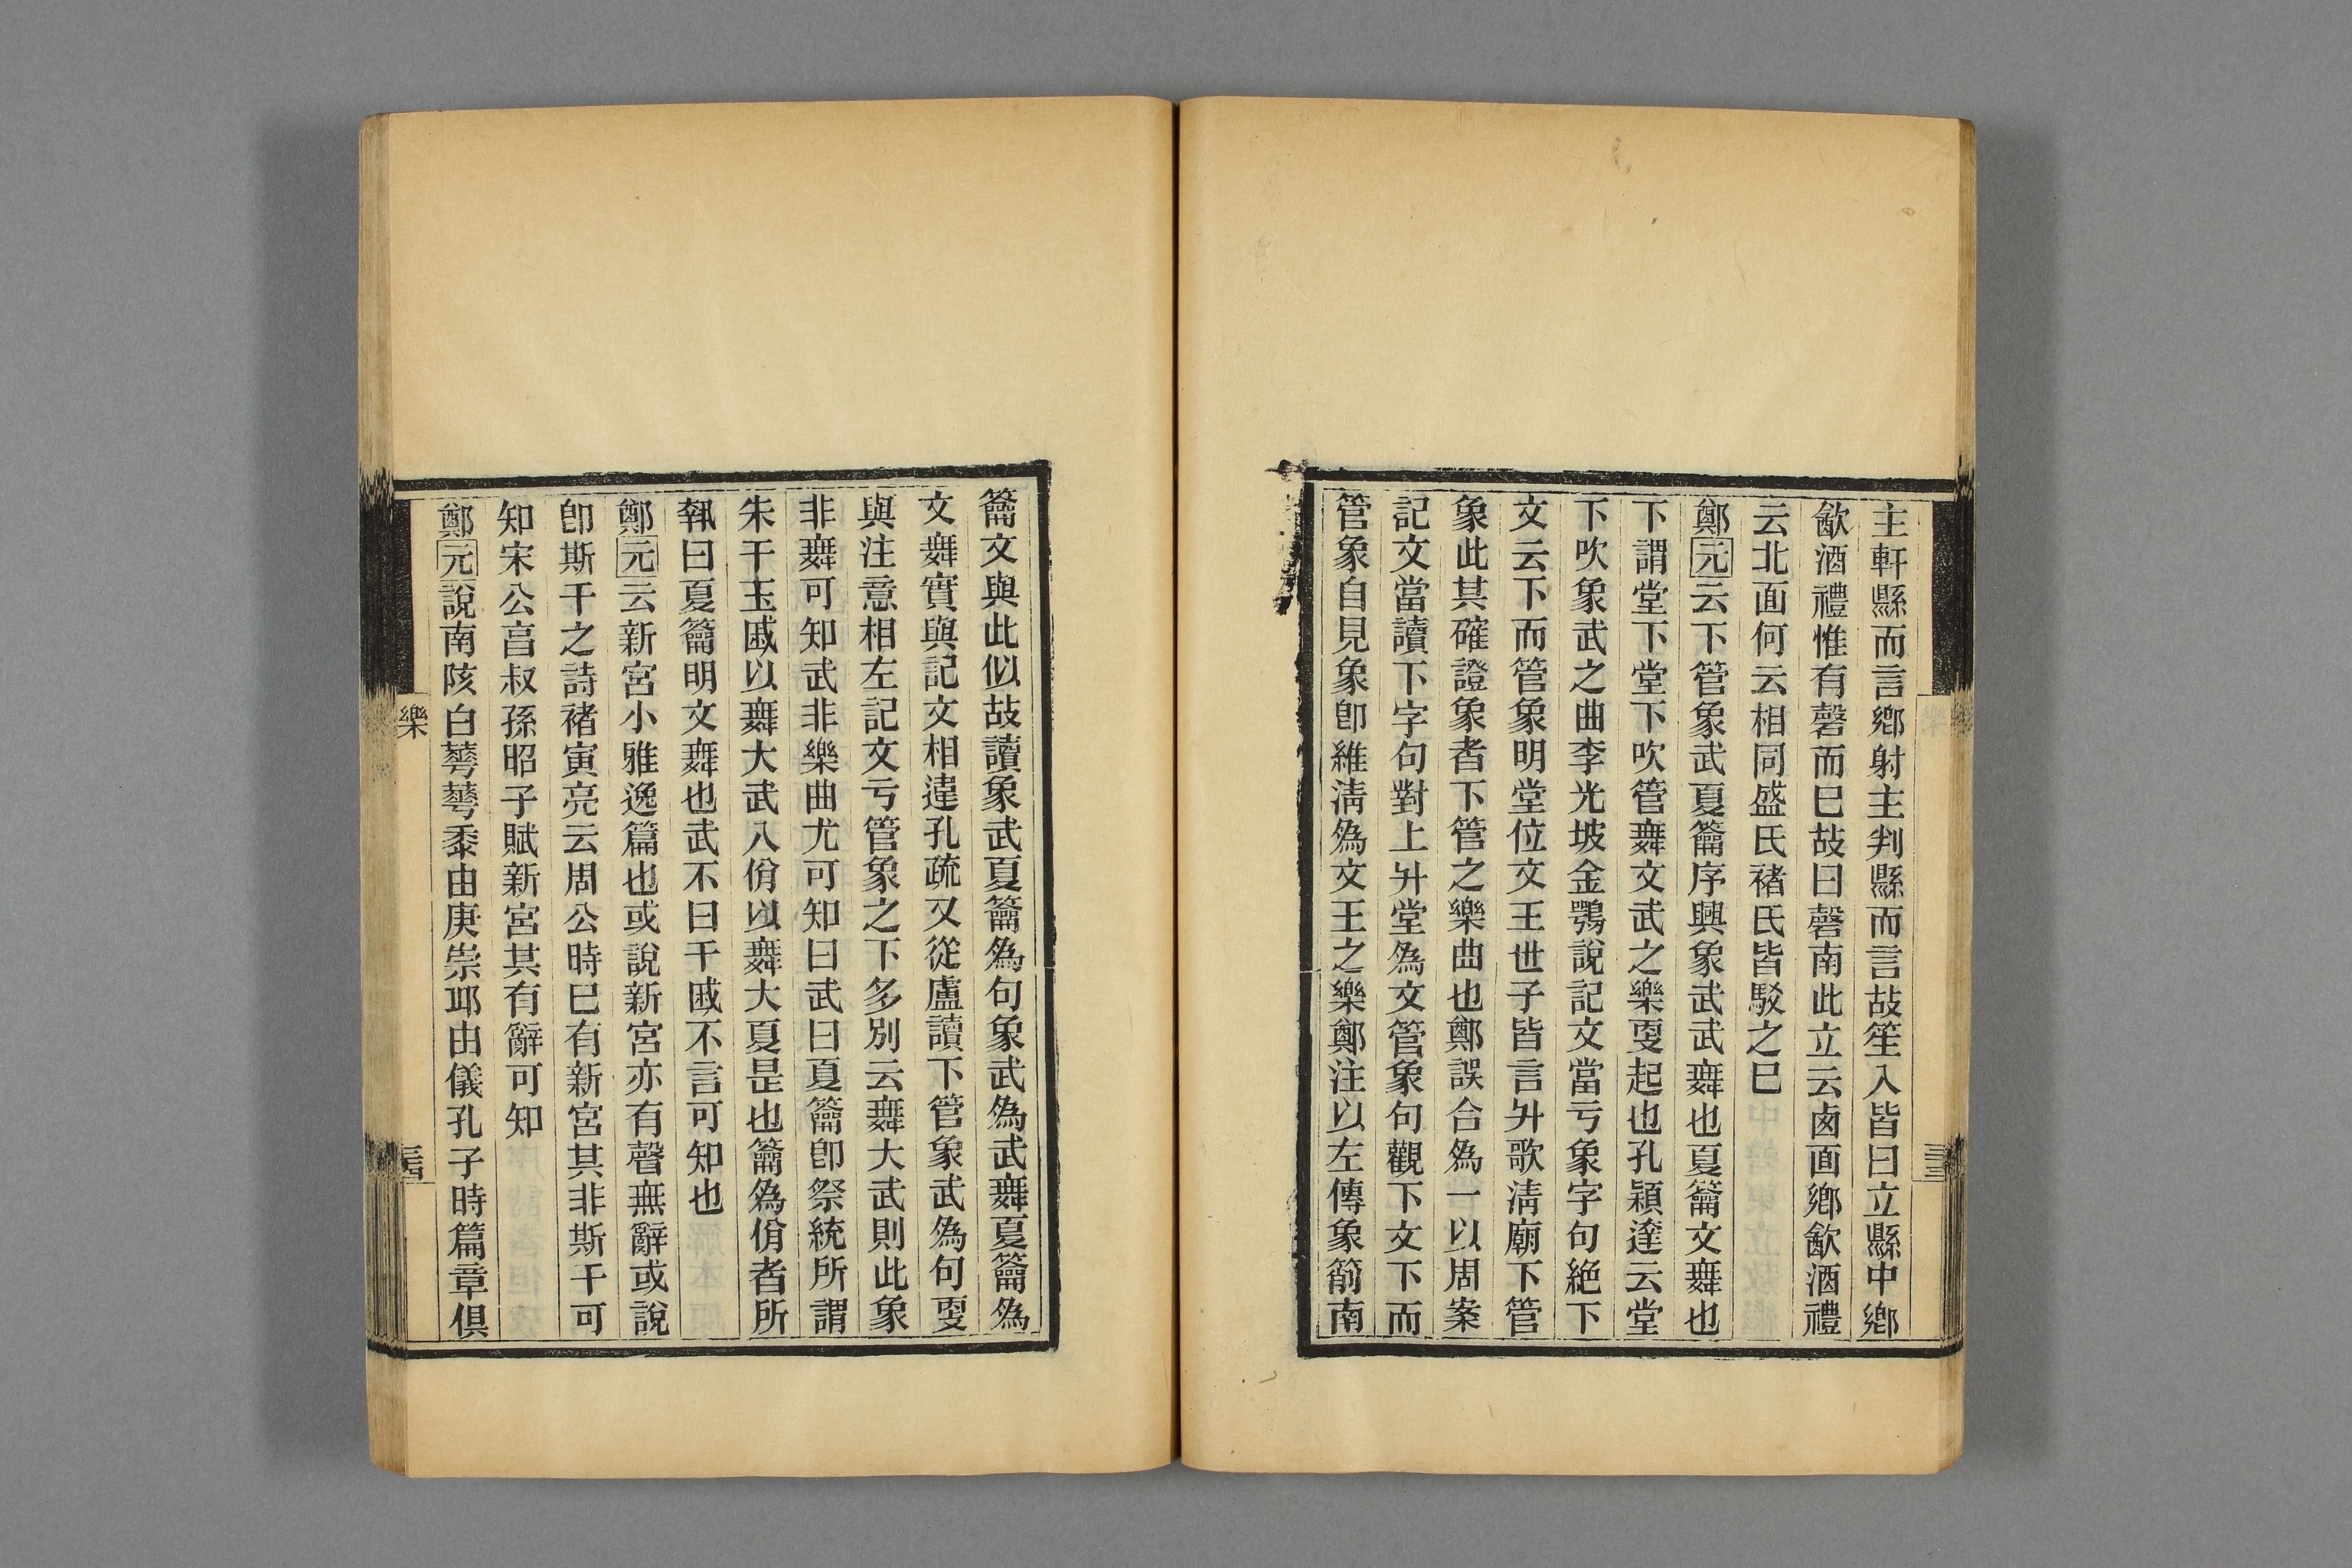 主軒縣而言鄉射主判縣而言故笙入皆曰立縣中鄉
歓酒禮惟有磬而巳故曰磬南此立云鹵面鄉歓酒禮
云北面何云相同盛氏褚氏皆駁之巳
鄭元云下管象武夏籥序興象武武舞也夏籥文舞也
下謂堂下堂下吹管舞文武之樂㪅起也孔穎達云堂
下吹象武之曲李光坡金鶚說記文當亏象字句絕下
文云下而管象明堂位文王世子皆言升歌淸廟下管
象此其確證象者下管之樂曲也鄭誤合爲一以周案
記文當讀下字句對上升堂爲文管象句觀下文下而
管象自見象卽維淸爲文王之樂鄭注以左傳象箾南
籥文與此似故讀象武夏籥爲句象武爲武舞夏籥爲
文舞實與記文相違孔疏又從盧讀下管象武爲句㪅
與注意相左記文亏管象之下多別云舞大武則此象
非舞可知武非樂曲尤可知曰武曰夏籥卽祭統所謂
朱干玉戚以舞大武八佾以舞大夏是也籥爲佾者所
執曰夏籥明文舞也武不曰干戚不言可知也
鄭元云新宮小雅逸篇也或說新宮亦有聲無辭或說
卽斯干之詩褚寅亮云周公時巳有新宮其非斯干可
知宋公亯叔孫昭子賦新宮其有辭可知
鄭元說南陔白蕚蕚黍由庚崇邱由儀孔子時篇章俱
樂
三十四
三十三